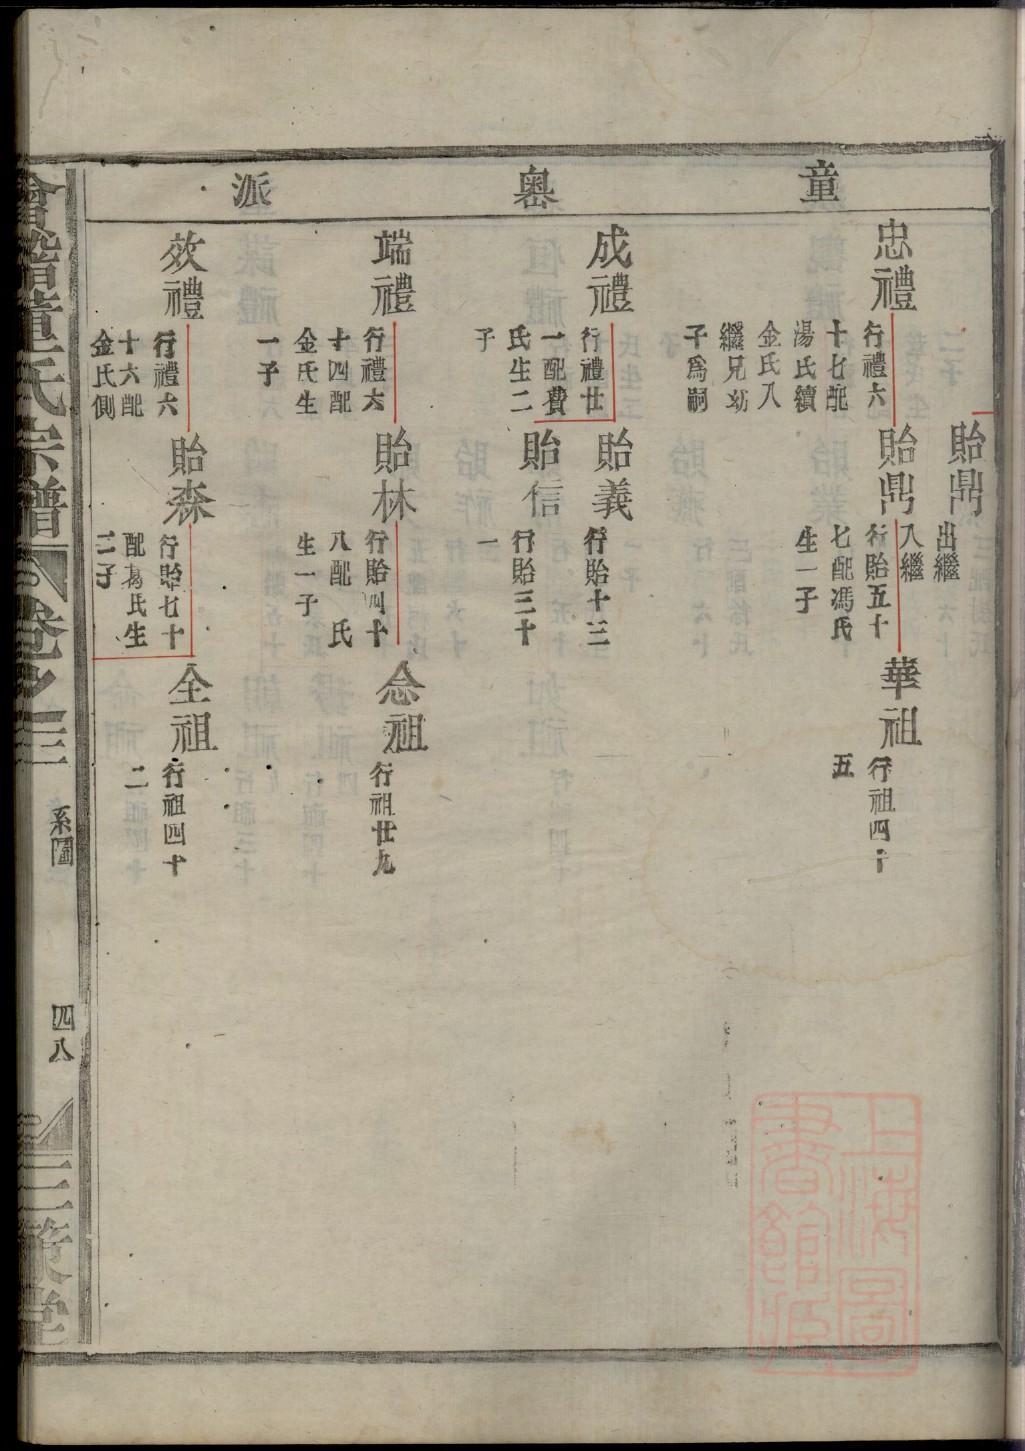 童
墺
派
貽鼎
出繼
忠禮
行禮六
十七配
湯氏續
金氏入
繼兄幼
子為嗣
貽鼎
入繼
行貽五十
七配馮氏
生一子
華祖
行祖四十
五
成禮
行禮廿
一配費
氏生二
子
貽義
行貽十三
貽信
行貽三十
一
端禮
行禮六
十四配
金氏生
一子
貽林
行貽四十
八配 氏
生一子
念祖
行祖廿九
效禮
行禮六
十六配
金氏側
貽森
行貽七十
配葛氏生
二子
全祖
行祖四十
二
會稽童氏宗譜
卷之三
系圖
四八
三策堂
上海圖
書館藏